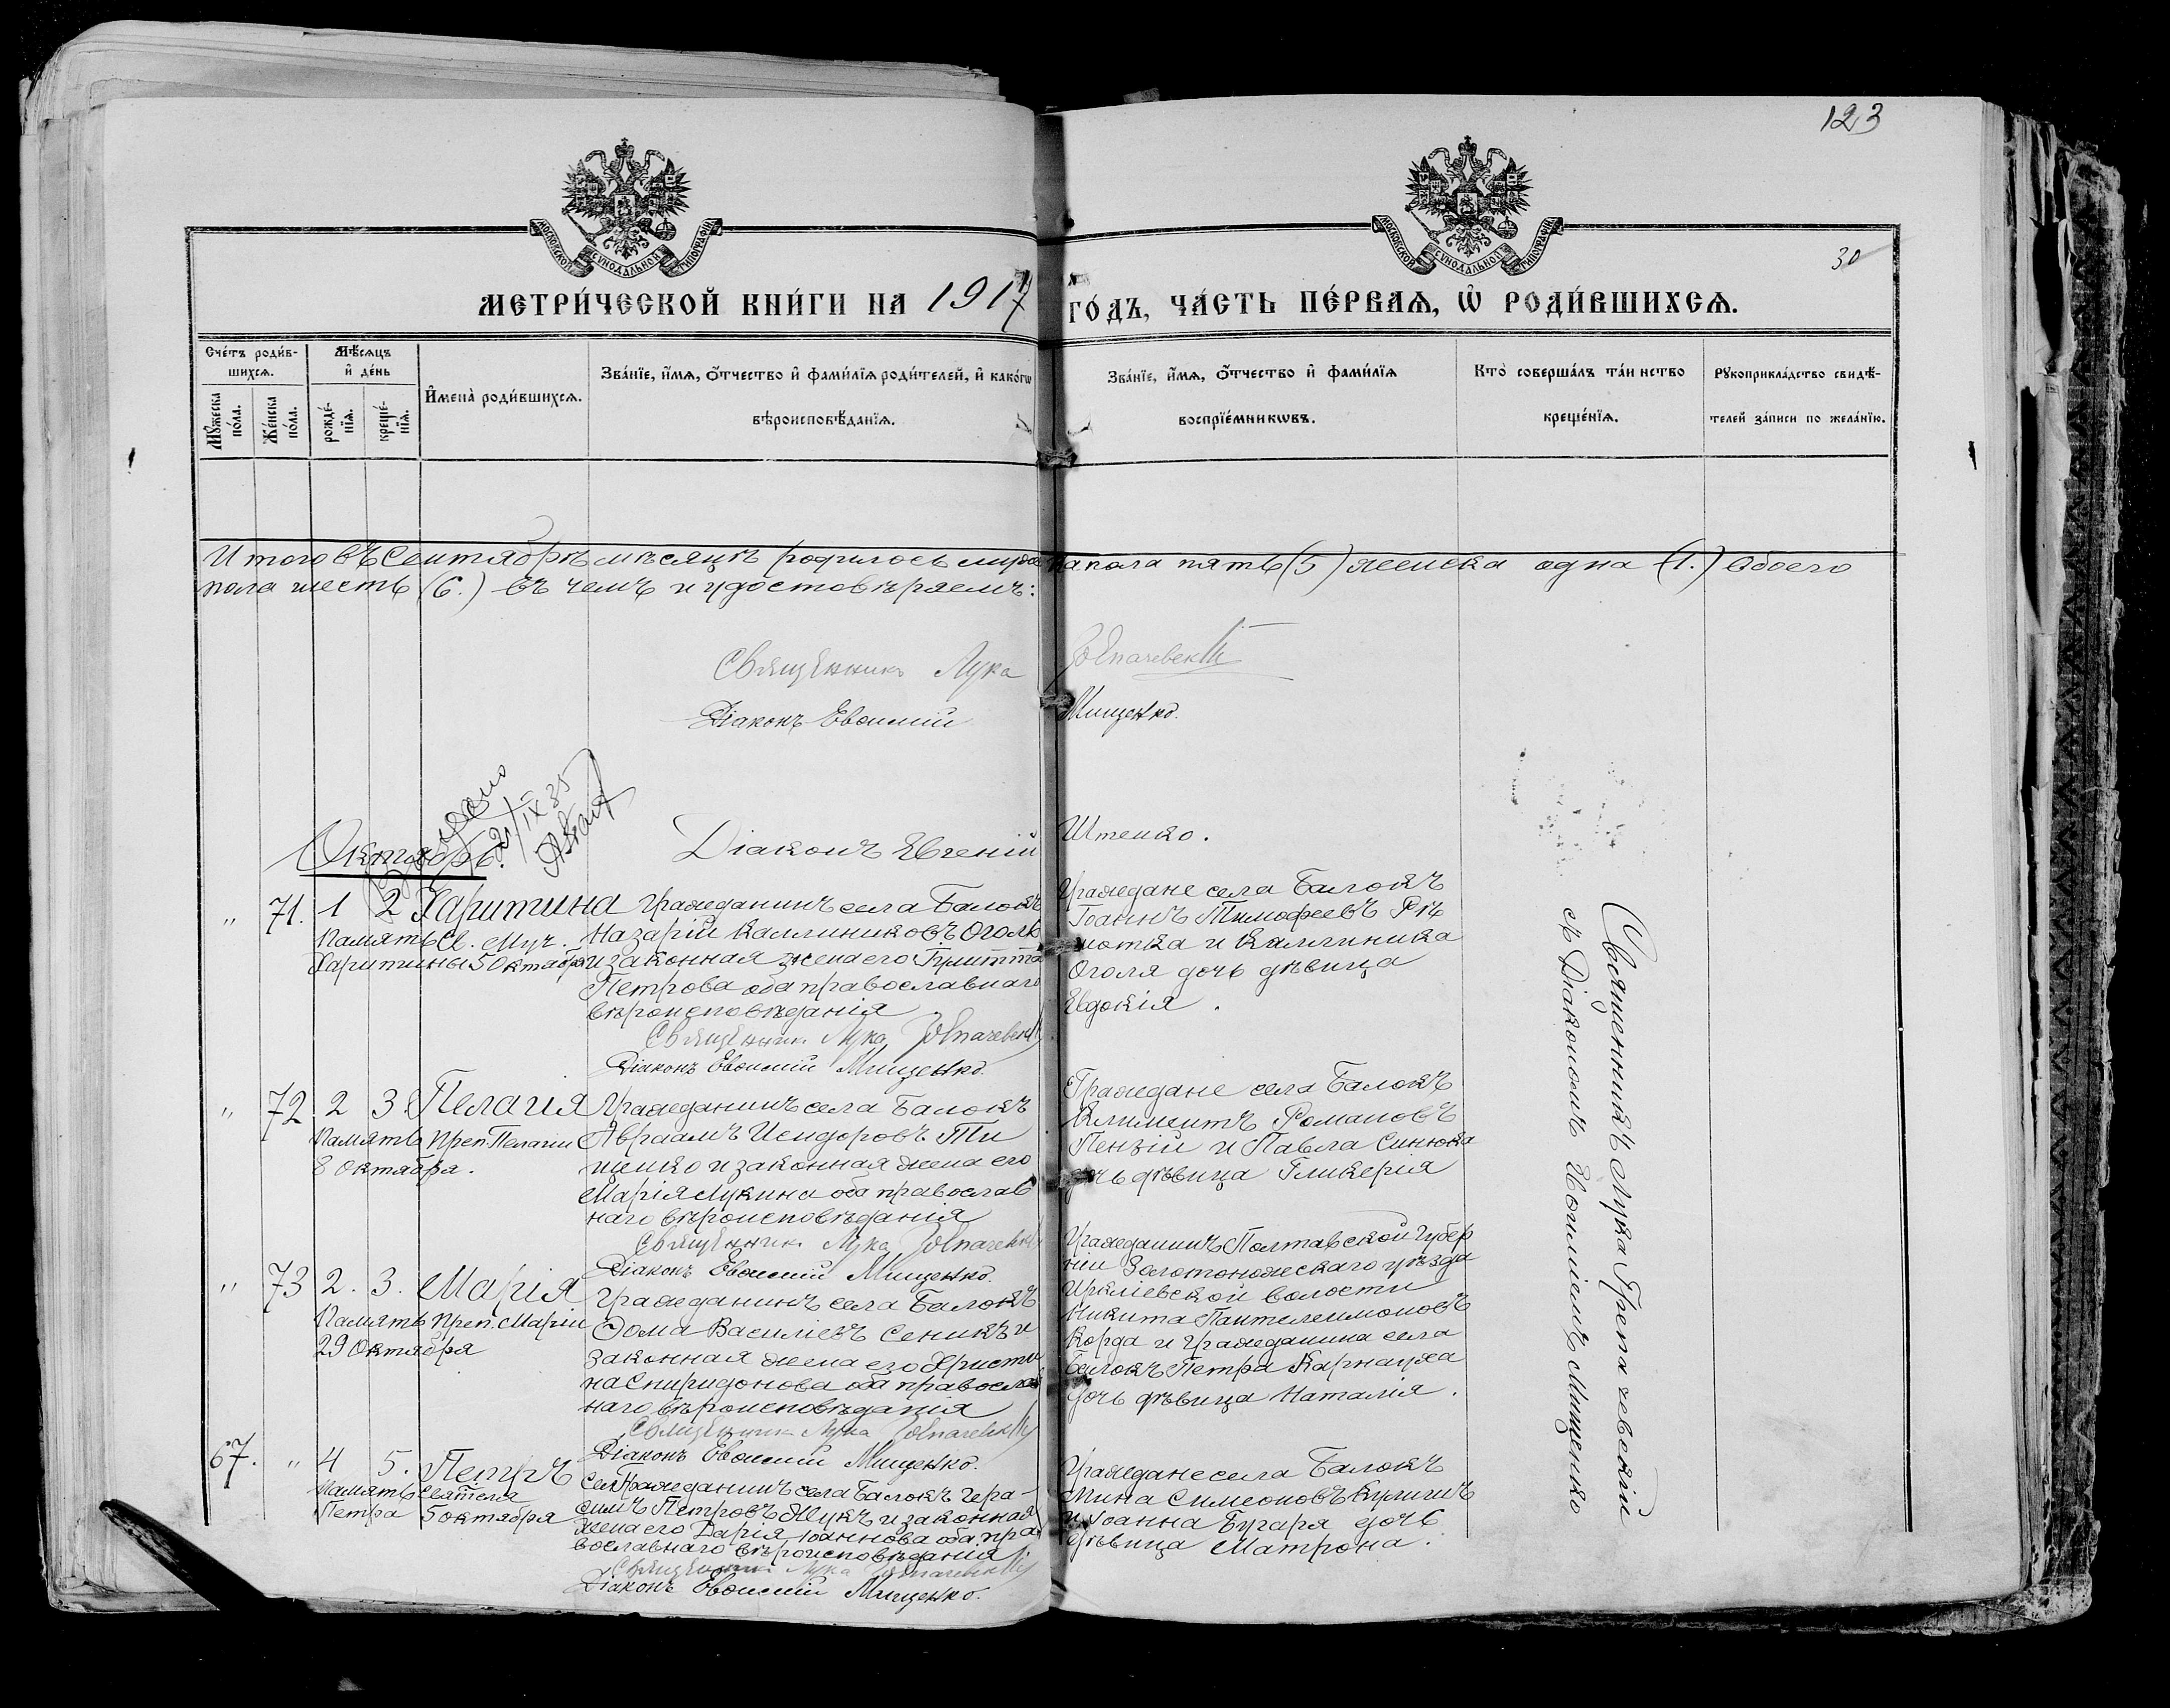 123
30
МОСКОВСКОЙ СУНОДАЛЬНОЙ ТИПОГРАФІИ
МОСКОВСКОЙ СУНОДАЛЬНОЙ ТИПОГРАФІИ
МЕТРИ́ЧЕСКОЙ КНИ́ГИ НА 1917 ГО́ДЪ, ЧА́СТЬ ПЕ́РВАѦ, Ѡ҆ РОДИ́ВШИХСѦ.
Сче́тъ роди́в-
шихсѧ.
Мꙋ́жеска по́ла.
Же́нска по́ла.
Мѣ́сѧцъ
и҆ де́нь
рожде́-
нїѧ.
креще́-
нїѧ.
И҆мена̀ роди́вшихсѧ.
Зва́нїе, и҆́мѧ, ѻ҆́тчество и҆ фами́лїѧ роди́телей, и҆ како́гѡ
вѣроисповѣ́данїѧ.
Зва́нїе, и҆́мѧ, ѻ҆́тчество и҆ фами́лїѧ
воспрїе́мникѡвъ.
Кто̀ соверша́лъ та́инство
креще́нїѧ.
Рꙋкоприкла́дство свидѣ́-
телей за́писи по жела́нїю.
Итого въ Сентябрѣ мѣсяцѣ родилось мужеска пола пять (5) женска одна (1.) Обоего
пола шесть (6.) въ чемъ и удостовѣряемъ:
Священникъ Лука Гречачевскій
Діаконъ Евѳимій Мищенко.
Діаконъ Евгеній Штенко.
21/IX 35
Октябрь.
" 71. 1 2 Харитина
Память Св. Муч.
Харитины 5 Октября
Гражданинъ села Балокъ
Назарій Каллиниковъ Оголь
и законная жена его
Петрова оба православнаго
вѣроисповѣданія
Священникъ Лука
Діаконъ Евѳимій Мищенко.
Граждане села Балокъ
Іоаннъ Тимофеевъ Рѣ
мотка и Каллиника
Оголя дочь дѣвица
Евдокія.
" 72. 2 3. Пелагія
Память Преп. Пелагіи
8 Октября.
Гражданинъ села Балокъ
Авраамъ Исидоровъ Ти
щенко и законная жена его
Марія Лукина оба православ
наго вѣроисповѣданія
Священникъ Лука
Діаконъ Евѳимій Мищенко.
Граждане села Балокъ
Климентъ Романовъ
Пензій и Павла Синюка
дочь дѣвица Гликерія
" 73 2. 3. Марія
Память Преп. Маріи
29 Октября
Гражданинъ села Балокъ
Ѳома Василіевъ Сеникъ и
законная жена его Христи
на Спиридонова оба православ
наго вѣроисповѣданія
Священникъ Лука
Діаконъ Евѳимій Мищенко.
Гражданинъ Полтавской Губер
ніи Золотоношскаго уѣзда
Ирклiевской волости
Никита Пантелеимоновъ
Корда и гражданина села
Балокъ Петра Карнауха
дочь дѣвица Наталія.
67. " 4 5. Петръ
Память Святителя
Петра 5 октября
Гражданинъ села Балокъ Гера-
симъ Петровъ Жукъ и законная
жена его Дарія Іоаннова оба пра
вославнаго вѣроисповѣданія
Священникъ Лука
Діаконъ Евѳимій Мищенко.
Граждане села Балокъ
Мина Симеоновъ Куличъ
и Іоанна Бугаря дочь
дѣвица Матрона.
Священникъ Лука Гречачевскій
съ Діакономъ Евѳиміемъ Мищенко